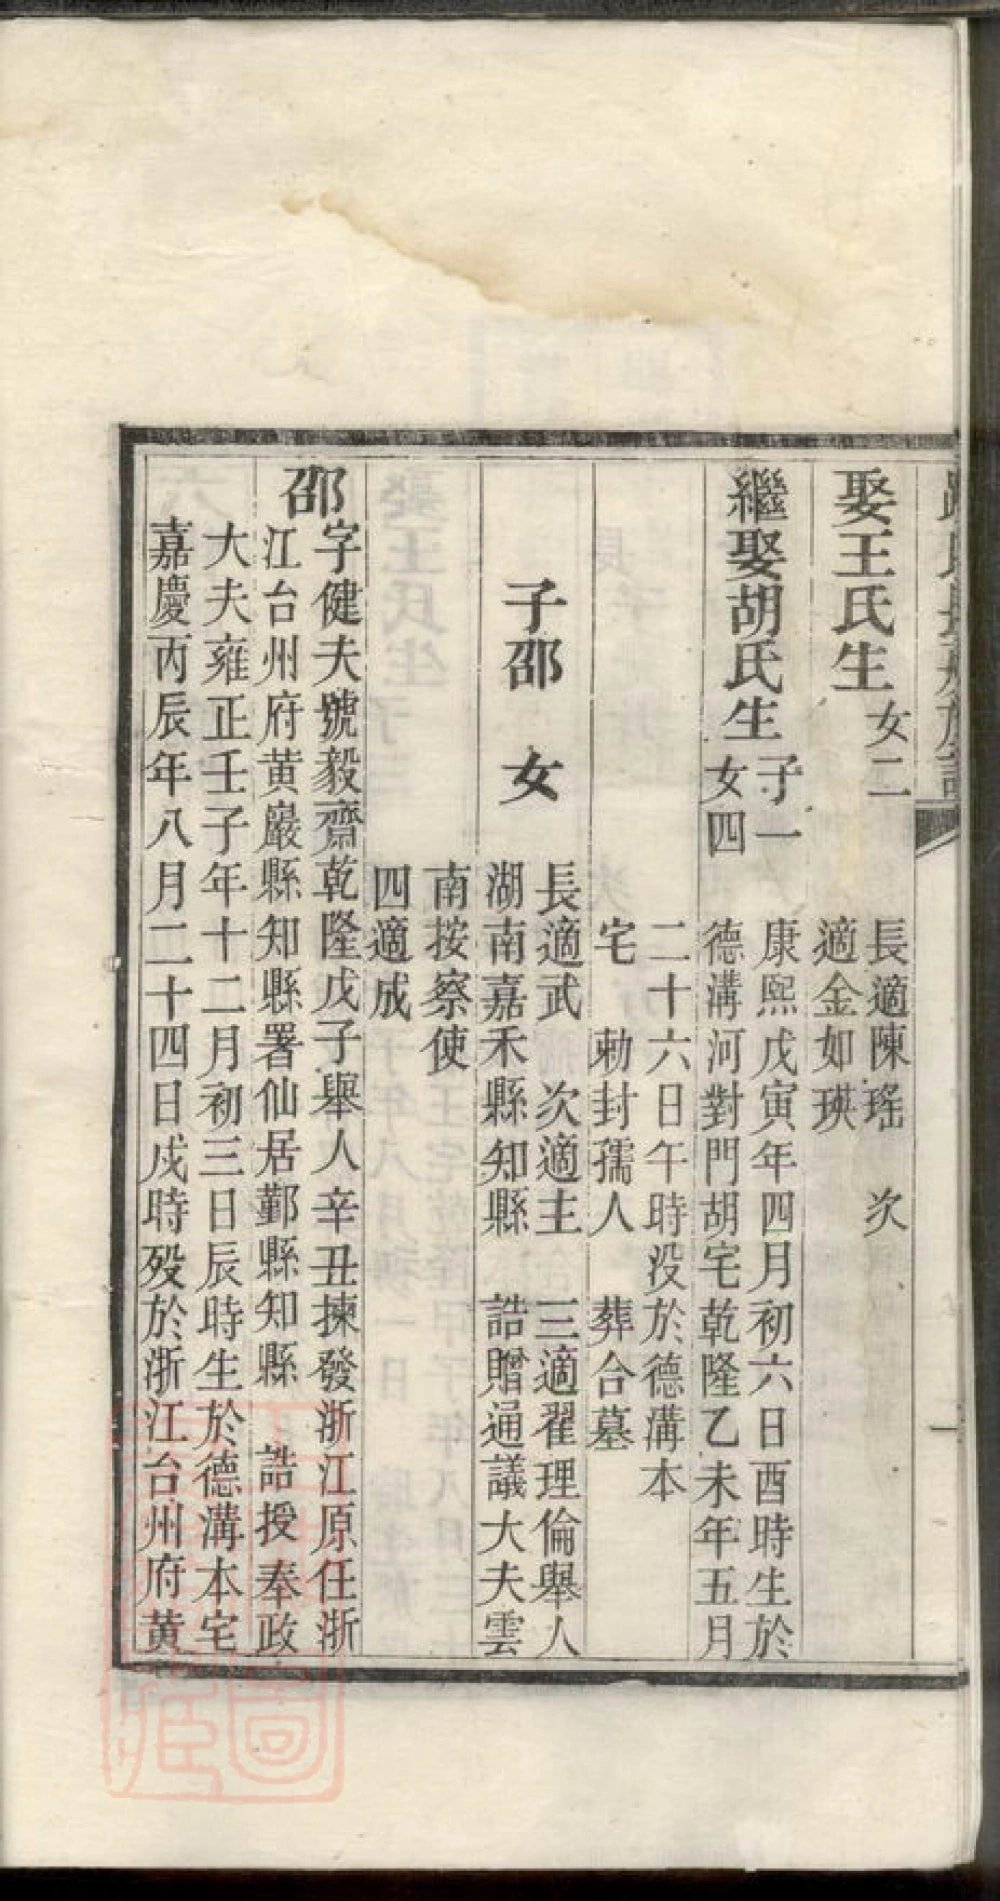 娶王氏生女二
長適陳瑤　次
適金如琪
繼娶胡氏生子一
女四
康熙戊寅年四月初六日酉時生於
德溝河對門胡宅乾隆乙未年五月
二十六日午時没於德溝本
宅　勅封孺人　葬合墓
子邵　女
長適武　次適王　三適翟理倫舉人
湖南嘉禾縣知縣　誥贈通議大夫雲
南按察使
四適成
邵
字健夫號毅齋乾隆戊子舉人辛丑揀發浙江原任浙
江台州府黄巖縣知縣署仙居鄞縣知縣　誥授奉政
大夫雍正壬子年十二月初三日辰時生於德溝本宅
嘉慶丙辰年八月二十四日戌時殁於浙江台州府黄